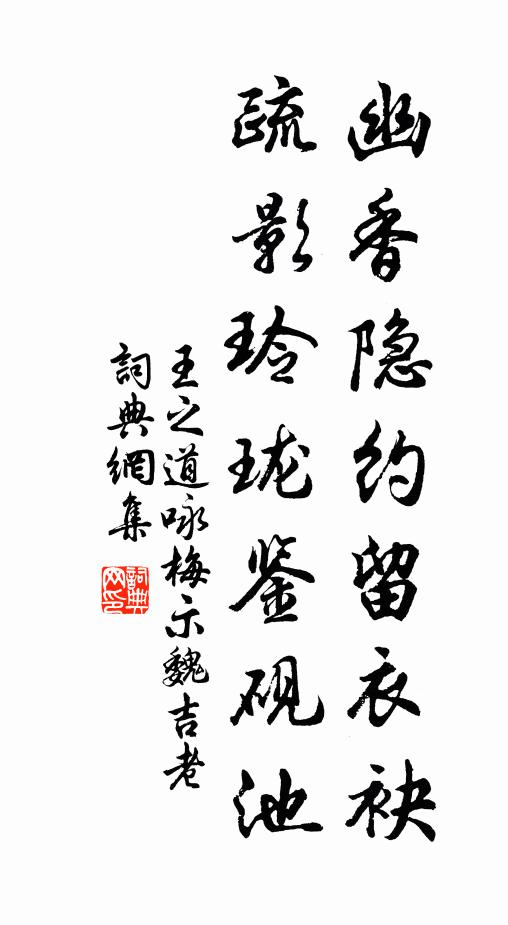 幽香隐约留衣袂
疏影玲珑鉴砚池
王之道咏梅示魏吉老
詞典網集
詞典网印